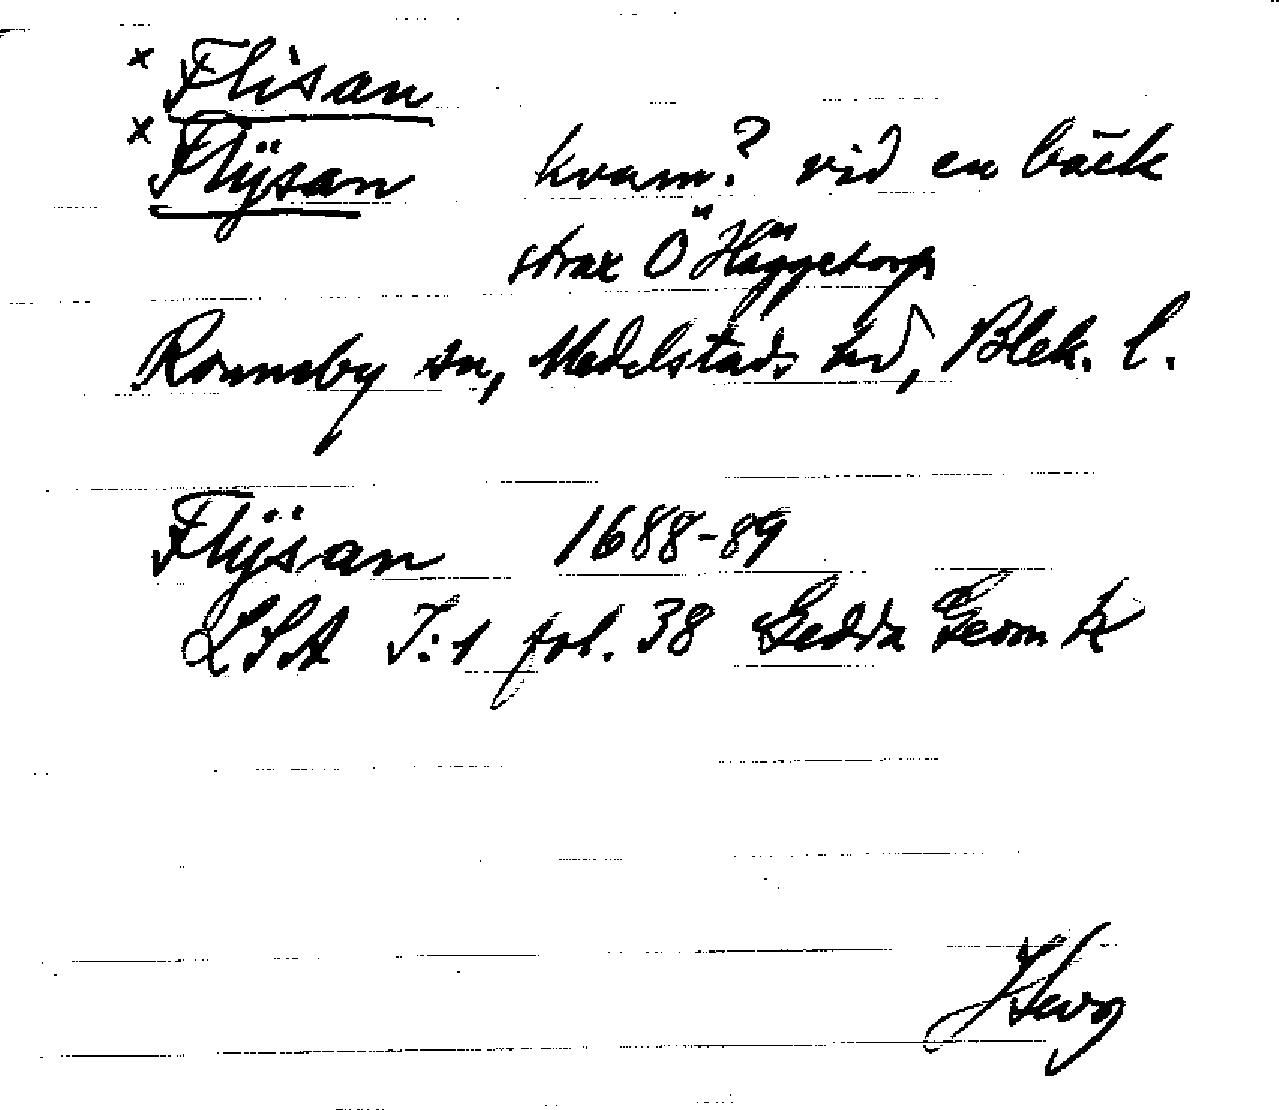 x Flisan
x Flÿsan kvarn? vid en bäck
strax Ö Häggetorp
Ronneby sn, Medelstads hd, Blek. l.
Flÿsan 1688-89
LSA I:1 fol. 38 Gedda Geom k